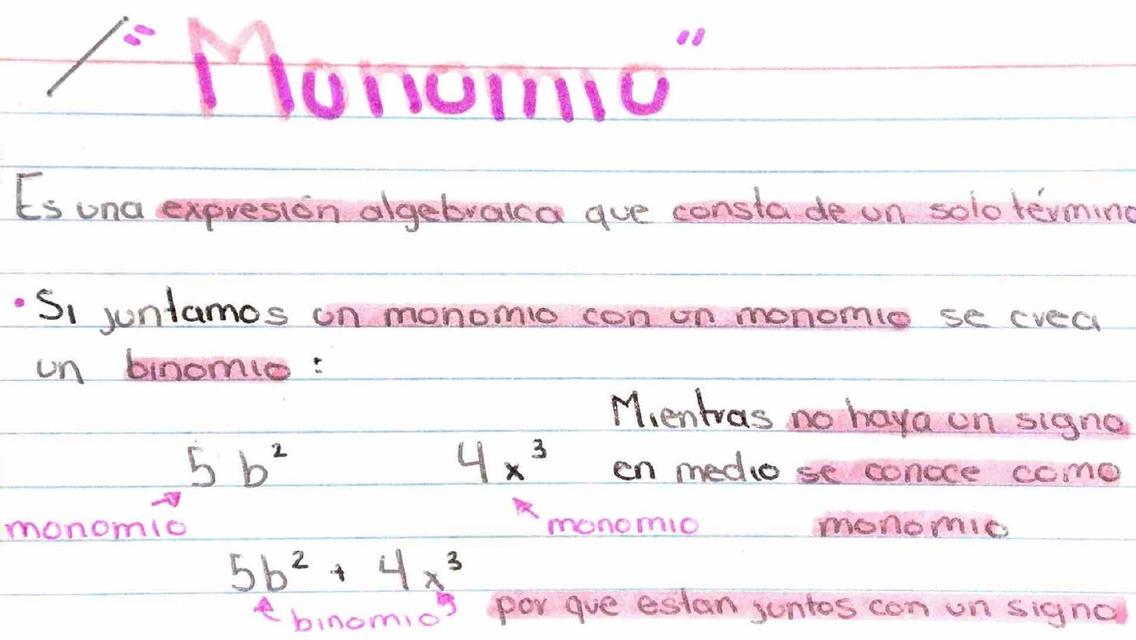 "Monomio"
Es una expresión algebraica que consta de un solo término
• Si juntamos un monomio con un monomio se crea
un binomio :
Mientras no haya un signo
5 b² 4x³ en medio se conoce como
monomio monomio monomio
5b² + 4x³
binomio por que estan juntos con un signo